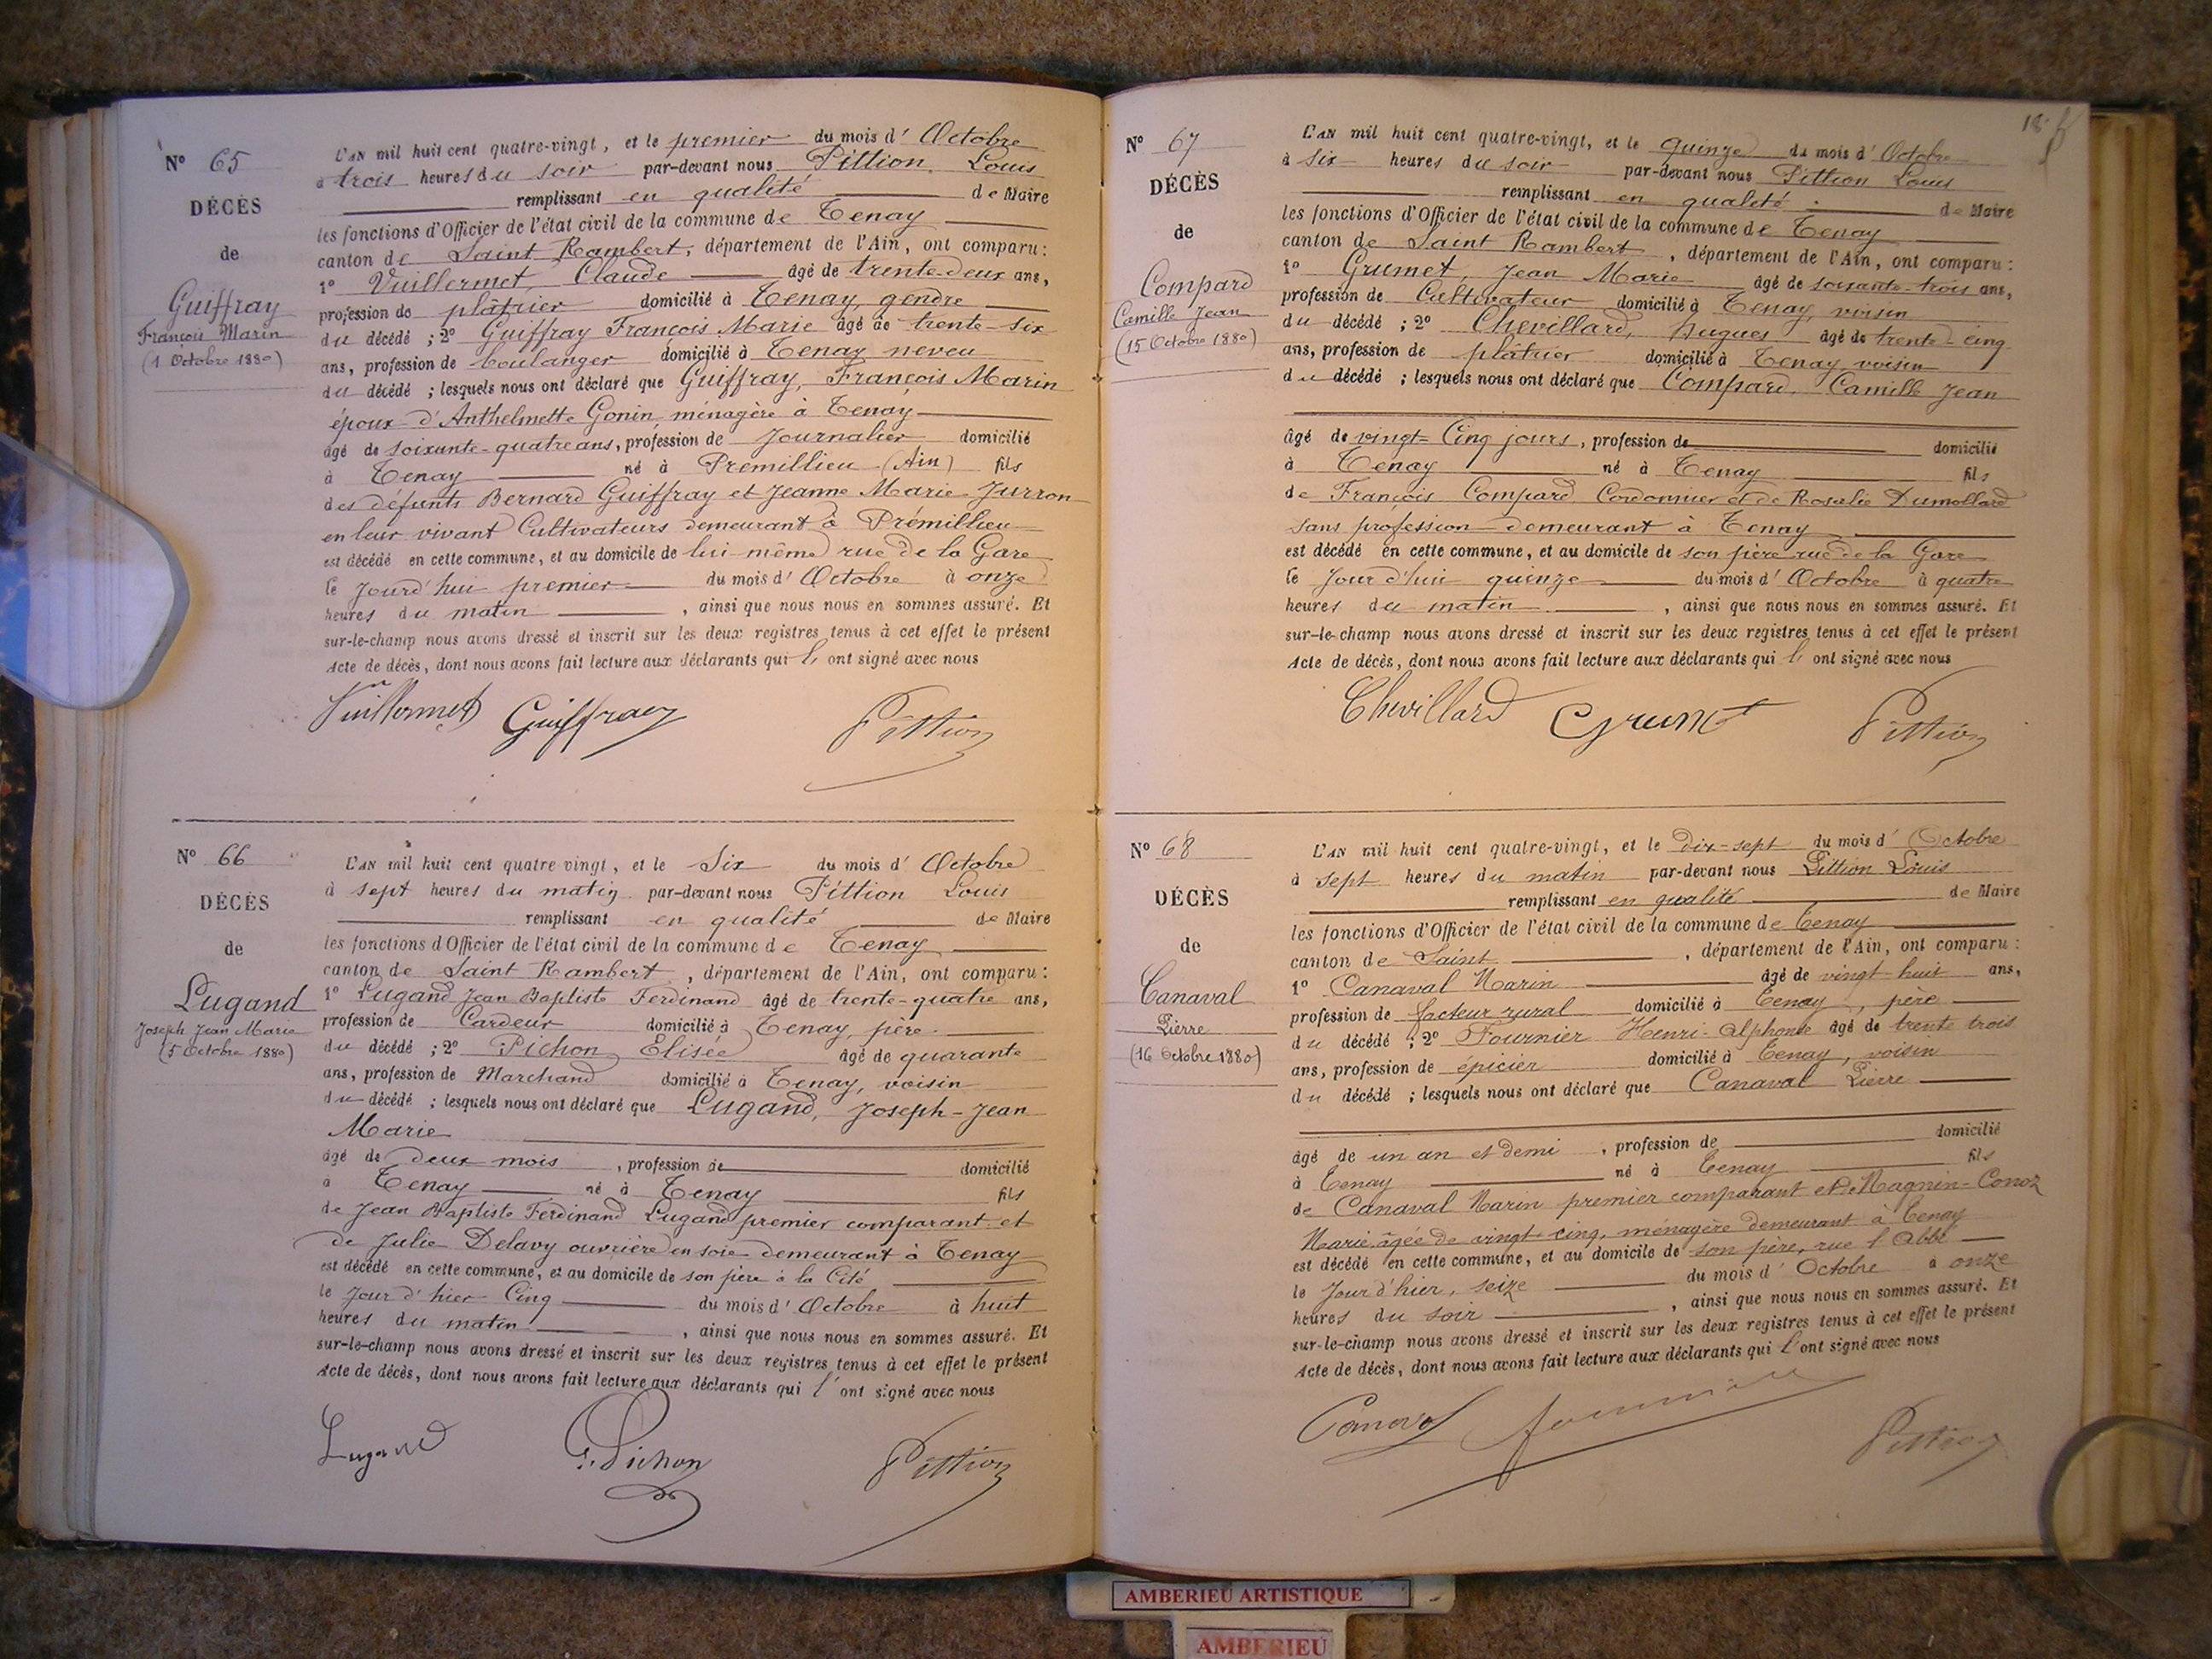 N° 65
DÉCÈS
de
Guiffray
François Marin
(1 Octobre 1880)
L'AN mil huit cent quatre-vingt, et le premier du mois d'Octobre
à trois heures du soir par-devant nous Pittion Louis
remplissant en qualité de Maire
les fonctions d'Officier de l'état civil de la commune de Tenay
canton de Saint Rambert, département de l'Ain, ont comparu:
1° Vuillermet, Claude âgé de trente-deux ans,
profession de plâtrier domicilié à Tenay, gendre
du décédé ; 2° Guiffray François Marie âgé de trente-six
ans, profession de boulanger domicilié à Tenay neveu
du décédé ; lesquels nous ont déclaré que Guiffray, François Marin
époux d'Anthelmette Gonin, ménagère à Tenay
âgé de soixante-quatre ans, profession de Journalier domicilié
à Tenay né à Premillieu (Ain) fils
des défunts Bernard Guiffray et Jeanne Marie Jurron
en leur vivant Cultivateurs demeurant à Prémillieu
est décédé en cette commune, et au domicile de lui-même rue de la Gare
le Jourd'hui premier du mois d'Octobre à onze
heures du matin, ainsi que nous nous en sommes assuré. Et
sur-le-champ nous avons dressé et inscrit sur les deux registres tenus à cet effet le présent
Acte de décès, dont nous avons fait lecture aux déclarants qui l'ont signé avec nous
Vuillermet Guiffray Pittion
N° 66
DÉCÈS
de
Lugand
Joseph Jean Marie
(5 Octobre 1880)
L'AN mil huit cent quatre-vingt, et le Six du mois d'Octobre
à sept heures du matin par-devant nous Pittion Louis
remplissant en qualité de Maire
les fonctions d'Officier de l'état civil de la commune de Tenay
canton de Saint Rambert, département de l'Ain, ont comparu:
1° Lugand Jean Baptiste Ferdinand âgé de trente-quatre ans,
profession de Cardeur domicilié à Tenay, père
du décédé ; 2° Pichon Elisée âgé de quarante
ans, profession de Marchand domicilié à Tenay, voisin
du décédé ; lesquels nous ont déclaré que Lugand, Joseph-Jean
Marie
âgé de deux mois, profession de domicilié
à Tenay né à Tenay fils
de Jean Baptiste Ferdinand Lugand premier comparant et
de Julie Delavy ouvrière en soie demeurant à Tenay
est décédé en cette commune, et au domicile de son père à la Cité
le Jour d'hier Cinq du mois d'Octobre à huit
heures du matin, ainsi que nous nous en sommes assuré. Et
sur-le-champ nous avons dressé et inscrit sur les deux registres tenus à cet effet le présent
Acte de décès, dont nous avons fait lecture aux déclarants qui l'ont signé avec nous
Lugand Pichon Pittion
18
N° 67
DÉCÈS
de
Compard
Camille Jean
(15 Octobre 1880)
L'AN mil huit cent quatre-vingt, et le quinze du mois d'Octobre
à six heures du soir par-devant nous Pittion Louis
remplissant en qualité de Maire
les fonctions d'Officier de l'état civil de la commune de Tenay
canton de Saint Rambert, département de l'Ain, ont comparu:
1° Grumet, Jean Marie âgé de soixante-trois ans,
profession de Cultivateur domicilié à Tenay, voisin
du décédé ; 2° Chevillard, Hugues âgé de trente-cinq
ans, profession de plâtrier domicilié à Tenay, voisin
du décédé ; lesquels nous ont déclaré que Compard, Camille Jean
âgé de vingt-Cinq jours, profession de domicilié
à Tenay né à Tenay fils
de François Compard Cordonnier et de Rosalie Dumollard
sans profession demeurant à Tenay
est décédé en cette commune, et au domicile de son père rue de la Gare
le Jour d'hui quinze du mois d'Octobre à quatre
heures du matin, ainsi que nous nous en sommes assuré. Et
sur-le-champ nous avons dressé et inscrit sur les deux registres tenus à cet effet le présent
Acte de décès, dont nous avons fait lecture aux déclarants qui l'ont signé avec nous
Chevillard Grumet Pittion
N° 68
DÉCÈS
de
Canaval
Pierre
(16 Octobre 1880)
L'AN mil huit cent quatre-vingt, et le Dix-sept du mois d'Octobre
à sept heures du matin par-devant nous Pittion Louis
remplissant en qualité de Maire
les fonctions d'Officier de l'état civil de la commune de Tenay
canton de Saint, département de l'Ain, ont comparu:
1° Canaval Marin âgé de vingt-huit ans,
profession de facteur rural domicilié à Tenay, père
du décédé ; 2° Fournier Henri-Alphonse âgé de trente trois
ans, profession de épicier domicilié à Tenay, voisin
du décédé ; lesquels nous ont déclaré que Canaval Pierre
âgé de un an et demi, profession de domicilié
à Tenay né à Tenay fils
de Canaval Marin premier comparant et de Magnin-Conoz
Marie, âgée de vingt-cinq, ménagère demeurant à Tenay
est décédé en cette commune, et au domicile de son père, rue l'Abbé
le Jour d'hier, seize du mois d'Octobre à onze
heures du soir, ainsi que nous nous en sommes assuré. Et
sur-le-champ nous avons dressé et inscrit sur les deux registres tenus à cet effet le présent
Acte de décès, dont nous avons fait lecture aux déclarants qui l'ont signé avec nous
Canaval Fournier Pittion
AMBERIEU ARTISTIQUE
AMBERIEU